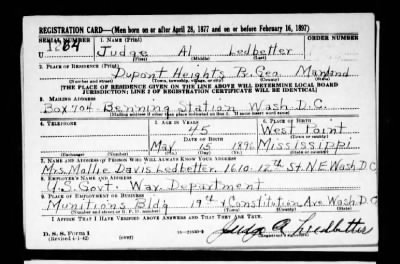 REGISTRATION CARD—(Men born on or after April 28, 1877 and on or before February 16, 1897)
SERIAL NUMBER 1. NAME (Print) ORDER NUMBER
U 1864 Judge Al Ledbetter
(First) (Middle) (Last)
2. PLACE OF RESIDENCE (Print)
Dupont Heights Pr. Geo. Maryland
(Number and street) (Town, township, village, or city) (County) (State)
[THE PLACE OF RESIDENCE GIVEN ON THE LINE ABOVE WILL DETERMINE LOCAL BOARD
JURISDICTION; LINE 2 OF REGISTRATION CERTIFICATE WILL BE IDENTICAL]
3. MAILING ADDRESS
Box 704 Benning Station Wash. D.C.
[Mailing address if other than place indicated on line 2. If same insert word same]
4. TELEPHONE 5. AGE IN YEARS 6. PLACE OF BIRTH
45 West Point
DATE OF BIRTH (Town or county)
May 15 1896 Mississippi
(Exchange) (Number) (Mo.) (Day) (Yr.) (State or country)
7. NAME AND ADDRESS OF PERSON WHO WILL ALWAYS KNOW YOUR ADDRESS
Mrs. Mollie Davis Ledbetter 1610-12th St. N.E. Wash D.C.
8. EMPLOYER'S NAME AND ADDRESS
U.S. Govt. War Department
9. PLACE OF EMPLOYMENT OR BUSINESS
Munitions Bldg 19th & Constitution Ave Wash D.C.
(Number and street or R. F. D. number) (Town) (County) (State)
I AFFIRM THAT I HAVE VERIFIED ABOVE ANSWERS AND THAT THEY ARE TRUE.
D. S. S. Form 1
(Revised 4-1-42) (over) 16-21630-2 Judge A Ledbetter
(Registrant's signature)